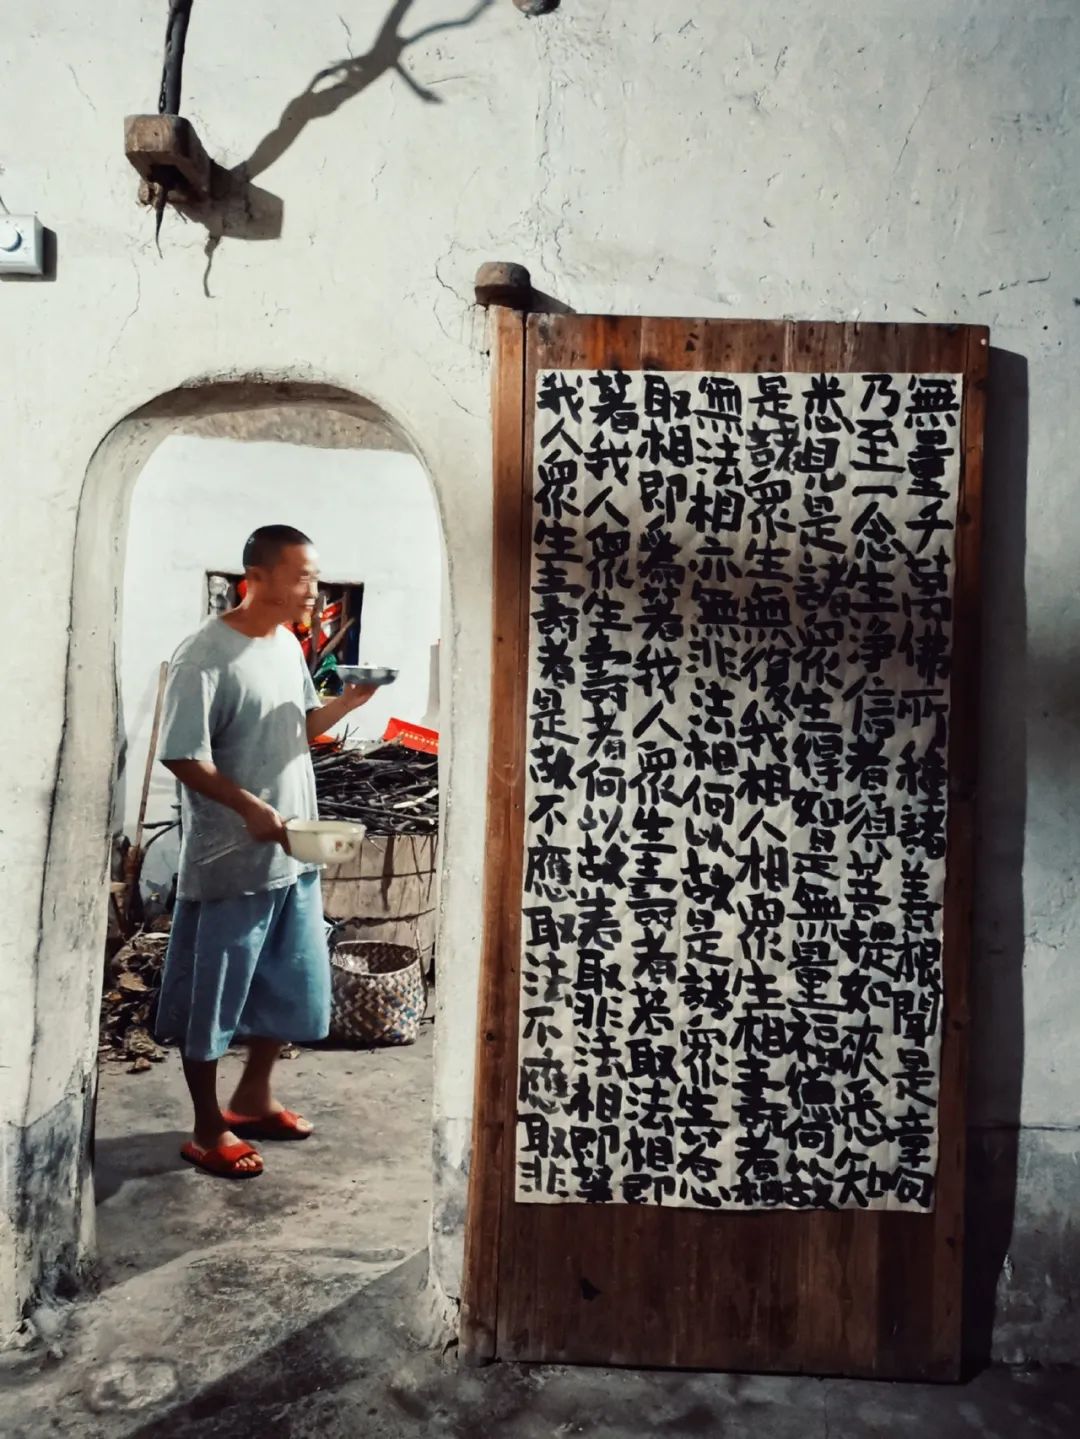 無量千萬佛所種諸善根聞是章句
乃至一念生淨信者須菩提如來悉知
悉見是諸眾生得如是無量福德何故
是諸眾生無復我相人相眾生相壽者相
無法相亦無非法相何以故是諸眾生若心
取相即為著我人眾生壽者若取法相即
著我人眾生壽者何以故若取非法相即著
我人眾生壽者是故不應取法不應取非